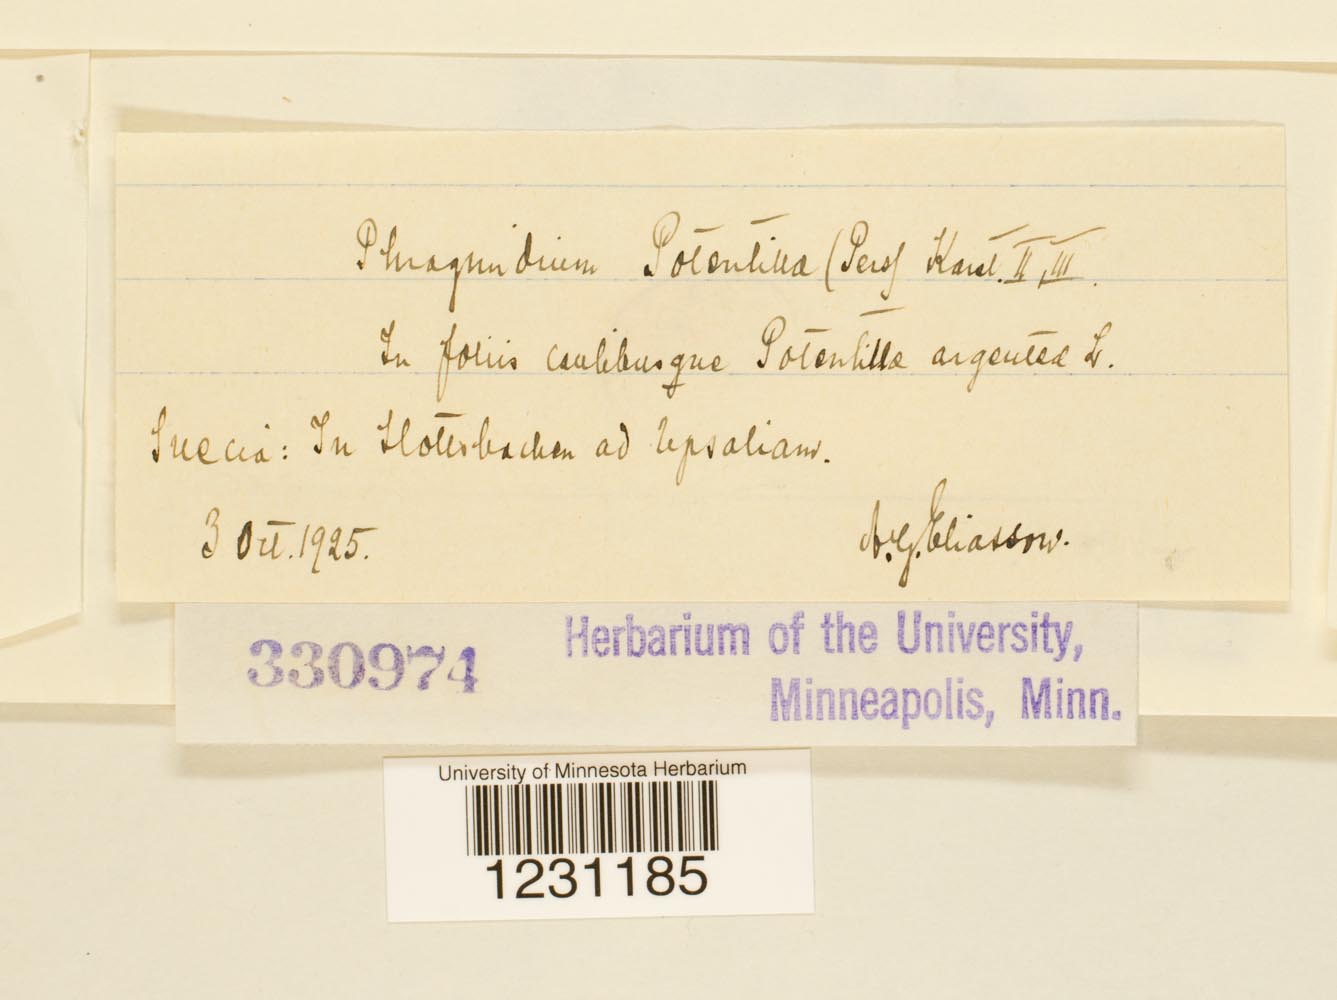 Phragmidium Potentillæ (Pers) Karst. II, III.
In foliis caulibusque Potentillæ argenteæ L.
Suecia: In Slottsbacken ad Upsaliam.
3 Oct. 1925.
A.G. Eliasson.
330974
Herbarium of the University,
Minneapolis, Minn.
University of Minnesota Herbarium
1231185